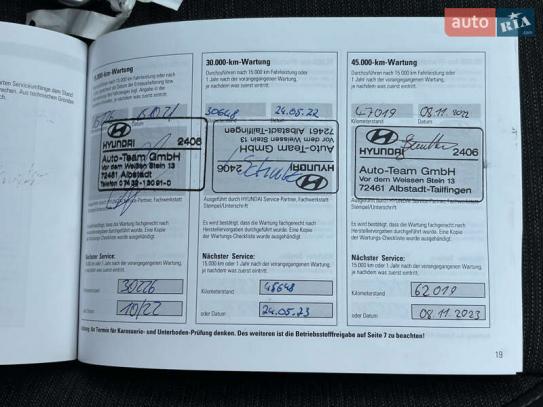 auto RIA.com
rten Serviceumfänge dem Stand
rechen. Aus technischen Gründen
.000-km-Wartung
30.000-km-Wartung
Durchführen nach 15.000 km Fahrleistung oder
1 Jahr nach der vorangegangenen Wartung,
je nachdem was zuerst eintritt.
30648
24.05.22
HYUNDAI
2406
Auto-Team GmbH
Vor dem Weissen Stein 13
72461 Albstadt-Tailfingen
Ausgeführt durch HYUNDAI Service-Partner, Fachwerkstatt
Stempel/Unterschrift
Es wird bestätigt, dass die Wartung fachgerecht nach
Herstellervorgaben durchgeführt wurde. Eine Kopie
der Wartungs-Checkliste wurde ausgehändigt.
Nächster Service:
15.000 km oder 1 Jahr nach der vorangegangenen Wartung,
je nachdem was zuerst eintritt.
Kilometerstand
45648
oder Datum
24.05.23
45.000-km-Wartung
Durchführen nach 15.000 km Fahrleistung oder
1 Jahr nach der vorangegangenen Wartung,
je nachdem was zuerst eintritt.
47019
08.11.2022
Kilometerstand
Datum
HYUNDAI
2406
Auto-Team GmbH
Vor dem Weissen Stein 13
72461 Albstadt-Tailfingen
Ausgeführt durch HYUNDAI Service-Partner, Fachwerkstatt
Stempel/Unterschrift
Es wird bestätigt, dass die Wartung fachgerecht nach
Herstellervorgaben durchgeführt wurde. Eine Kopie
der Wartungs-Checkliste wurde ausgehändigt.
Nächster Service:
15.000 km oder 1 Jahr nach der vorangegangenen Wartung,
je nachdem was zuerst eintritt.
Kilometerstand
62019
oder Datum
08.11.2023
HYUNDAI
2406
Auto-Team GmbH
Vor dem Weissen Stein 13
72461 Albstadt
Nächster Service:
30226
10/22
an Termin für Karosserie- und Unterboden-Prüfung denken. Des weiteren ist die Betriebsstofffreigabe auf Seite 7 zu beachten!
19